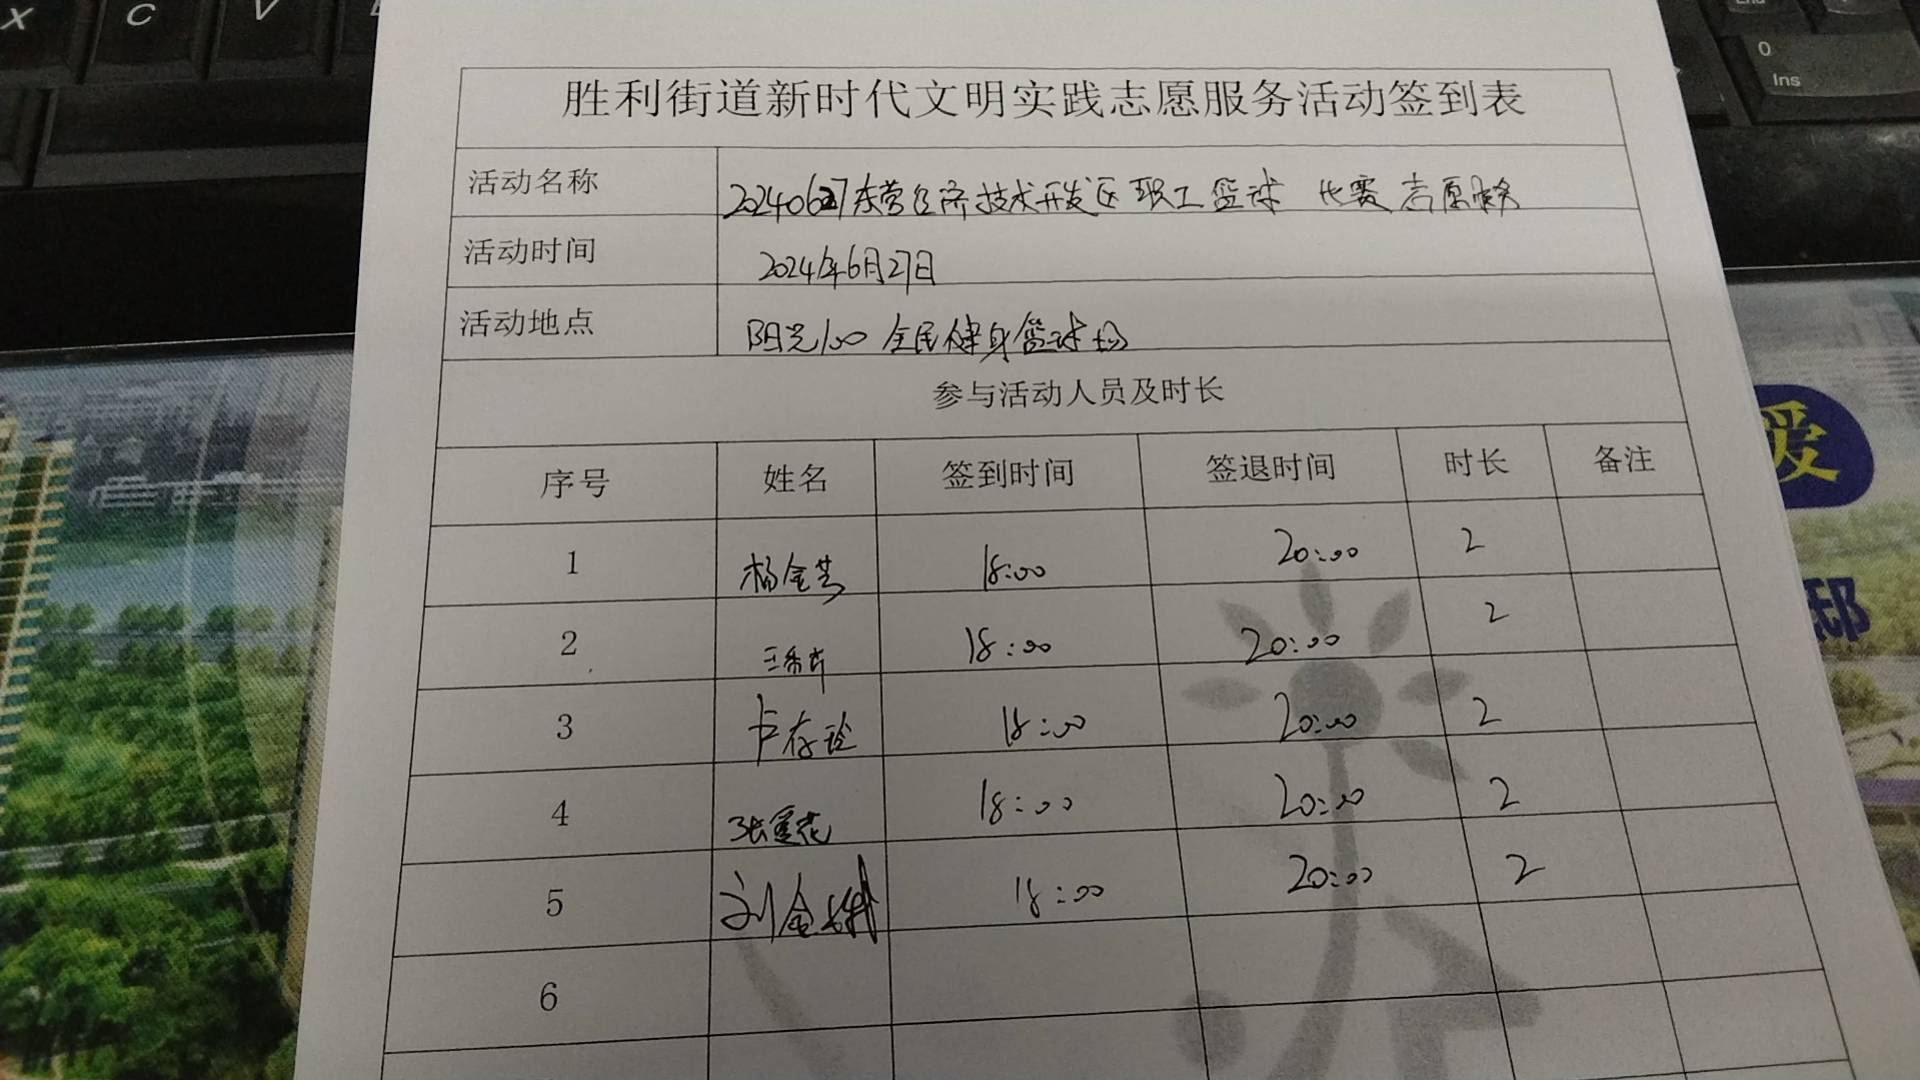 X C V
End
0
Ins
胜利街道新时代文明实践志愿服务活动签到表
活动名称 20240627东营经济技术开发区职工篮球 比赛志愿服务
活动时间 2024年6月27日
活动地点 阳光100 全民健身篮球场
参与活动人员及时长
序号 姓名 签到时间 签退时间 时长 备注
1 杨金芝 18:00 20:00 2
2 18:00 20:00 2
3 18:00 20:00 2
4 18:00 20:00 2
5 刘金娥 18:00 20:00 2
6
爱
邸